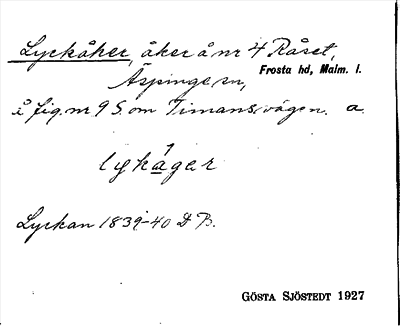 Lyckåker, åker å nr 4 Råset,
Frosta hd, Malm. l.
Äspinge sn,
å fig. nr 9 S. om Timansvägen. a.
lykågar
Lyckan 1839-40 D B.
GÖSTA SJÖSTEDT 1927